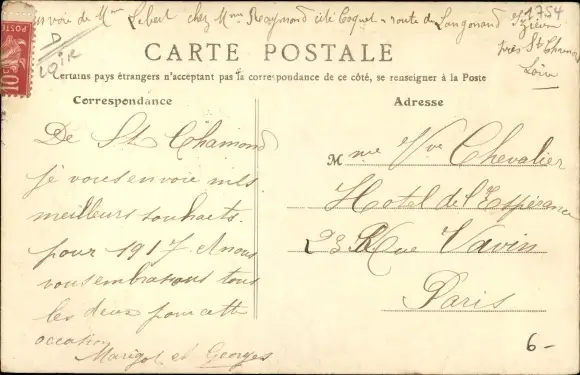 Envoie de Mme Lebert chez Mme Raymond cité Coquet - route de Langonand
1754
Izieux
près St Chamond
Loire
D
LOIRE
POSTES
10
CARTE POSTALE
Certains pays étrangers n'acceptant pas la correspondance de ce côté, se renseigner à la Poste
Correspondance
Adresse
De St Chamond
je vous envoie mls
meilleurs souhaits.
pour 1917. Nous
vous embrassons tous
les deux pour cette
occasion
Marigot et Georges
Mme Vve Chevalier
Hotel de l'Espérance
23 Rue Vavin
Paris
6-